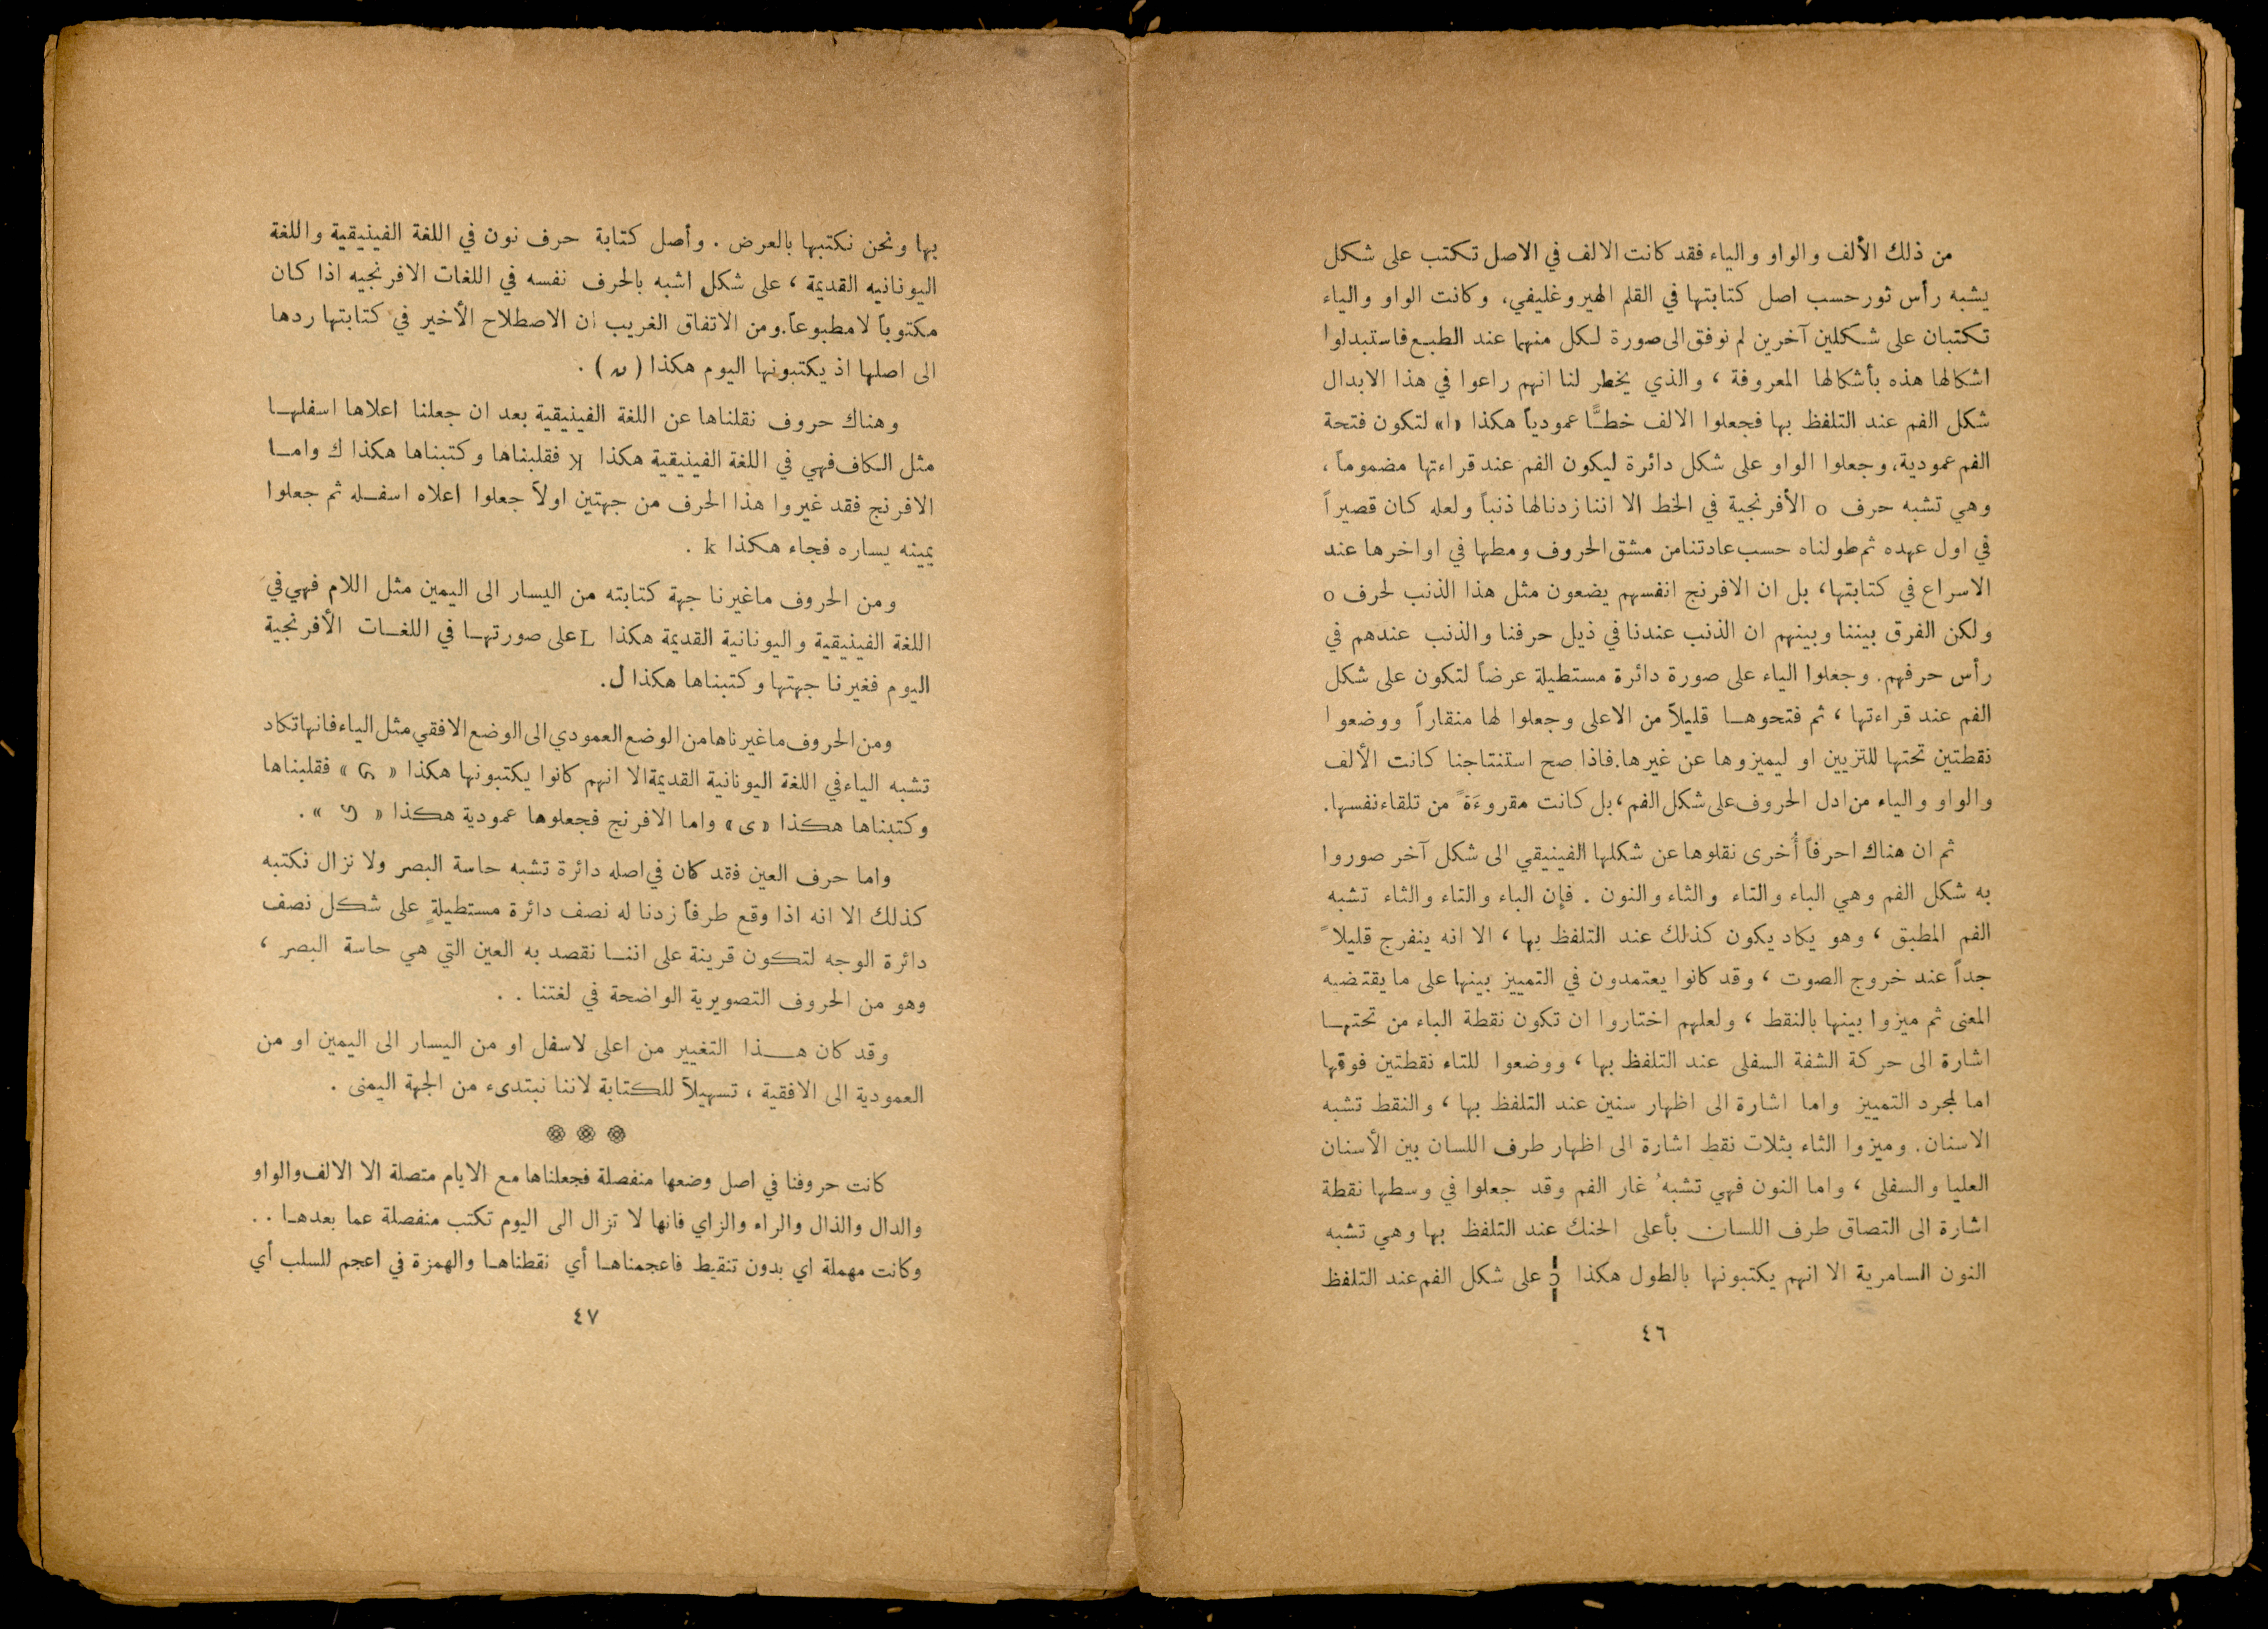 من ذلك الألف والواو والياء فقد كانت الالف في الاصل تكتب على شكل
يشبه رأس ثور حسب اصل كتابتها في القلم الهيروغليفي، وكانت الواو والياء
تكتبان على شكلين آخرين لم نوفق الى صورة لكل منهما عند الطبع فاستبدلوا
اشكالها هذه بأشكالها المعروفة ، والذي يخطر لنا انهم راعوا في هذا الابدال
شكل الفم عند التلفظ بها فجعلوا الالف خطًّا عمودياً هكذا «ا» لتكون فتحة
الفم عمودية، وجعلوا الواو على شكل دائرة ليكون الفم عند قراءتها مضموماً ،
وهي تشبه حرف o الأفرنجية في الخط الا اننا زدنا لها ذنباً ولعله كان قصيراً
في اول عهده ثم طولناه حسب عادتنا من مشق الحروف ومطها في اواخرها عند
الاسراع في كتابتها، بل ان الافرنج انفسهم يضعون مثل هذا الذنب لحرف o
ولكن الفرق بيننا وبينهم ان الذنب عندنا في ذيل حرفنا والذنب عندهم في
رأس حرفهم. وجعلوا الياء على صورة دائرة مستطيلة عرضاً لتكون على شكل
الفم عند قراءتها ، ثم فتحوها قليلاً من الاعلى وجعلوا لها منقاراً ووضعوا
نقطتين تحتها للتزيين او ليميزوها عن غيرها. فاذا صح استنتاجنا كانت الألف
والواو والياء من ادل الحروف على شكل الفم ، بل كانت مقروءَةً من تلقاء نفسها.
ثم ان هناك احرفاً أُخرى نقلوها عن شكلها الفينيقي الى شكل آخر صوروا
به شكل الفم وهي الباء والتاء والثاء والنون . فإن الباء والتاء والثاء تشبه
الفم المطبق ، وهو يكاد يكون كذلك عند التلفظ بها ، الا انه ينفرج قليلاً
جداً عند خروج الصوت ، وقد كانوا يعتمدون في التمييز بينها على ما يقتضيه
المعنى ثم ميزوا بينها بالنقط ، ولعلهم اختاروا ان تكون نقطة الباء من تحتها
اشارة الى حركة الشفة السفلى عند التلفظ بها ، ووضعوا للتاء نقطتين فوقها
اما لمجرد التمييز واما اشارة الى اظهار سنين عند التلفظ بها ، والنقط تشبه
الاسنان. وميزوا الثاء بثلاث نقط اشارة الى اظهار طرف اللسان بين الأسنان
العليا والسفلى ، واما النون فهي تشبهُ غار الفم وقد جعلوا في وسطها نقطة
اشارة الى التصاق طرف اللسان بأعلى الحنك عند التلفظ بها وهي تشبه
النون السامرية الا انهم يكتبونها بالطول هكذا على شكل الفم عند التلفظ
٤٦
بها ونحن نكتبها بالعرض . وأصل كتابة حرف نون في اللغة الفينيقية واللغة
اليونانيه القديمة ، على شكل اشبه بالحرف نفسه في اللغات الافرنجيه اذا كان
مكتوباً لا مطبوعاً. ومن الاتفاق الغريب ان الاصطلاح الأخير في كتابتها ردها
الى اصلها اذ يكتبونها اليوم هكذا ( ) .
وهناك حروف نقلناها عن اللغة الفينيقية بعد ان جعلنا اعلاها اسفلها
مثل الكاف فهي في اللغة الفينيقية هكذا فقلبناها وكتبناها هكذا ك واما
الافرنج فقد غيروا هذا الحرف من جهتين اولاً جعلوا اعلاه اسفله ثم جعلوا
يمينه يساره فجاء هكذا k .
ومن الحروف ما غيرنا جهة كتابته من اليسار الى اليمين مثل اللام فهي في
اللغة الفينيقية واليونانية القديمة هكذا L على صورتها في اللغات الأفرنجية
اليوم فغيرنا جهتها وكتبناها هكذا ل.
ومن الحروف ما غيرناها من الوضع العمودي الى الوضع الافقي مثل الياء فانها تكاد
تشبه الياء في اللغة اليونانية القديمة الا انهم كانوا يكتبونها هكذا « » فقلبناها
وكتبناها هكذا «ى» واما الافرنج فجعلوها عمودية هكذا « » .
واما حرف العين فقد كان في اصله دائرة تشبه حاسة البصر ولا نزال نكتبه
كذلك الا انه اذا وقع طرفاً زدنا له نصف دائرة مستطيلةٍ على شكل نصف
دائرة الوجه لتكون قرينة على اننا نقصد به العين التي هي حاسة البصر ،
وهو من الحروف التصويرية الواضحة في لغتنا . .
وقد كان هذا التغيير من اعلى لاسفل او من اليسار الى اليمين او من
العمودية الى الافقية ، تسهيلاً للكتابة لاننا نبتدىء من الجهة اليمنى .
كانت حروفنا في اصل وضعها منفصلة فجعلناها مع الايام متصلة الا الالف والواو
والدال والذال والراء والزاي فانها لا تزال الى اليوم تكتب منفصلة عما بعدها . .
وكانت مهملة اي بدون تنقيط فاعجمناها أي نقطناها والهمزة في اعجم للسلب أي
٤٧